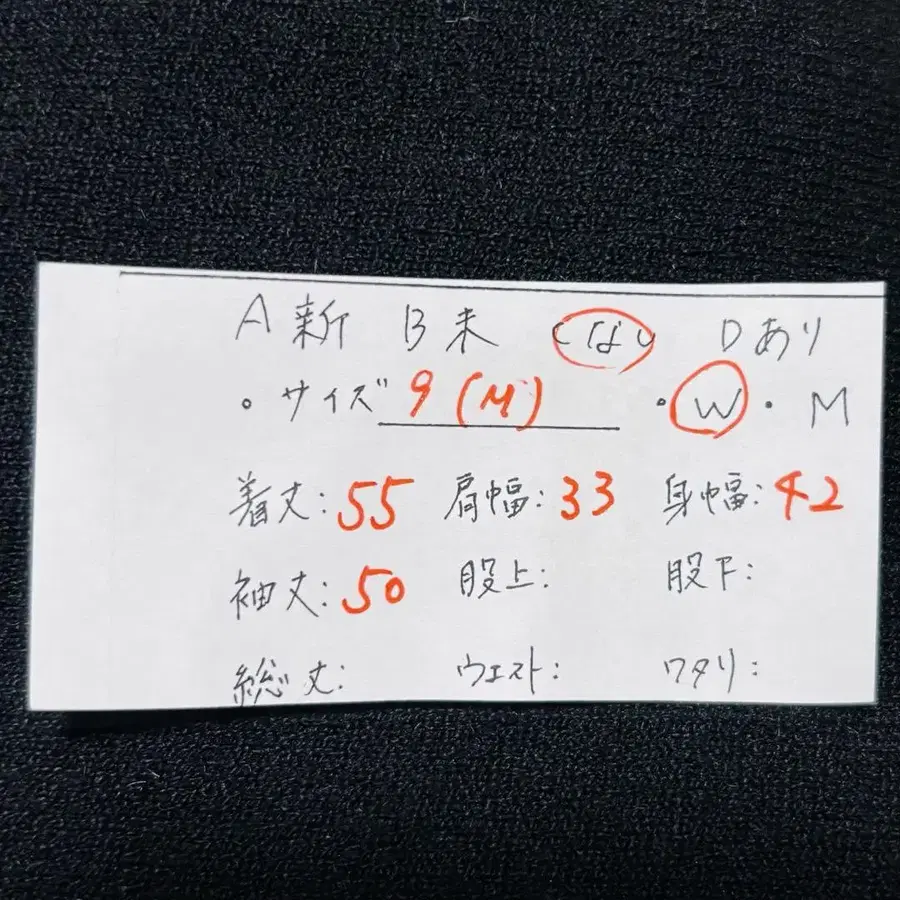 A新 B未 Cなし Dあり
・サイズ 9 (M) ・W・M
着丈:55 肩幅:33 身幅:42
袖丈:50 股上: 股下:
総丈: ウエスト: ワタリ: